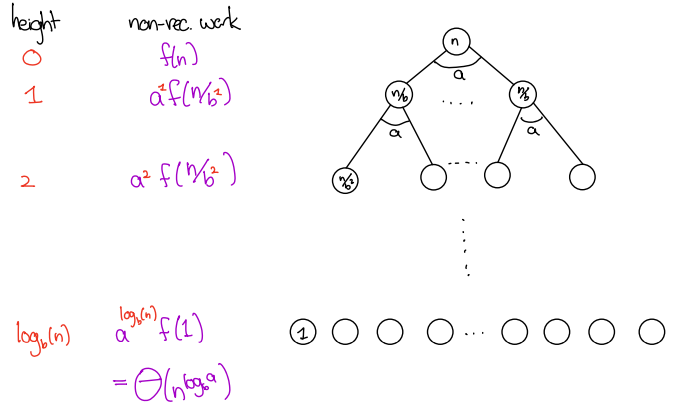 height non-rec. work
0 f(n)
1 a¹f(n/b¹)
2 a² f(n/b²)
log_b(n) a^{log_b(n)} f(1)
= Θ(n^{log_b a})
n
a
n/b .... n/b
a a
n/b² ....
1 ...